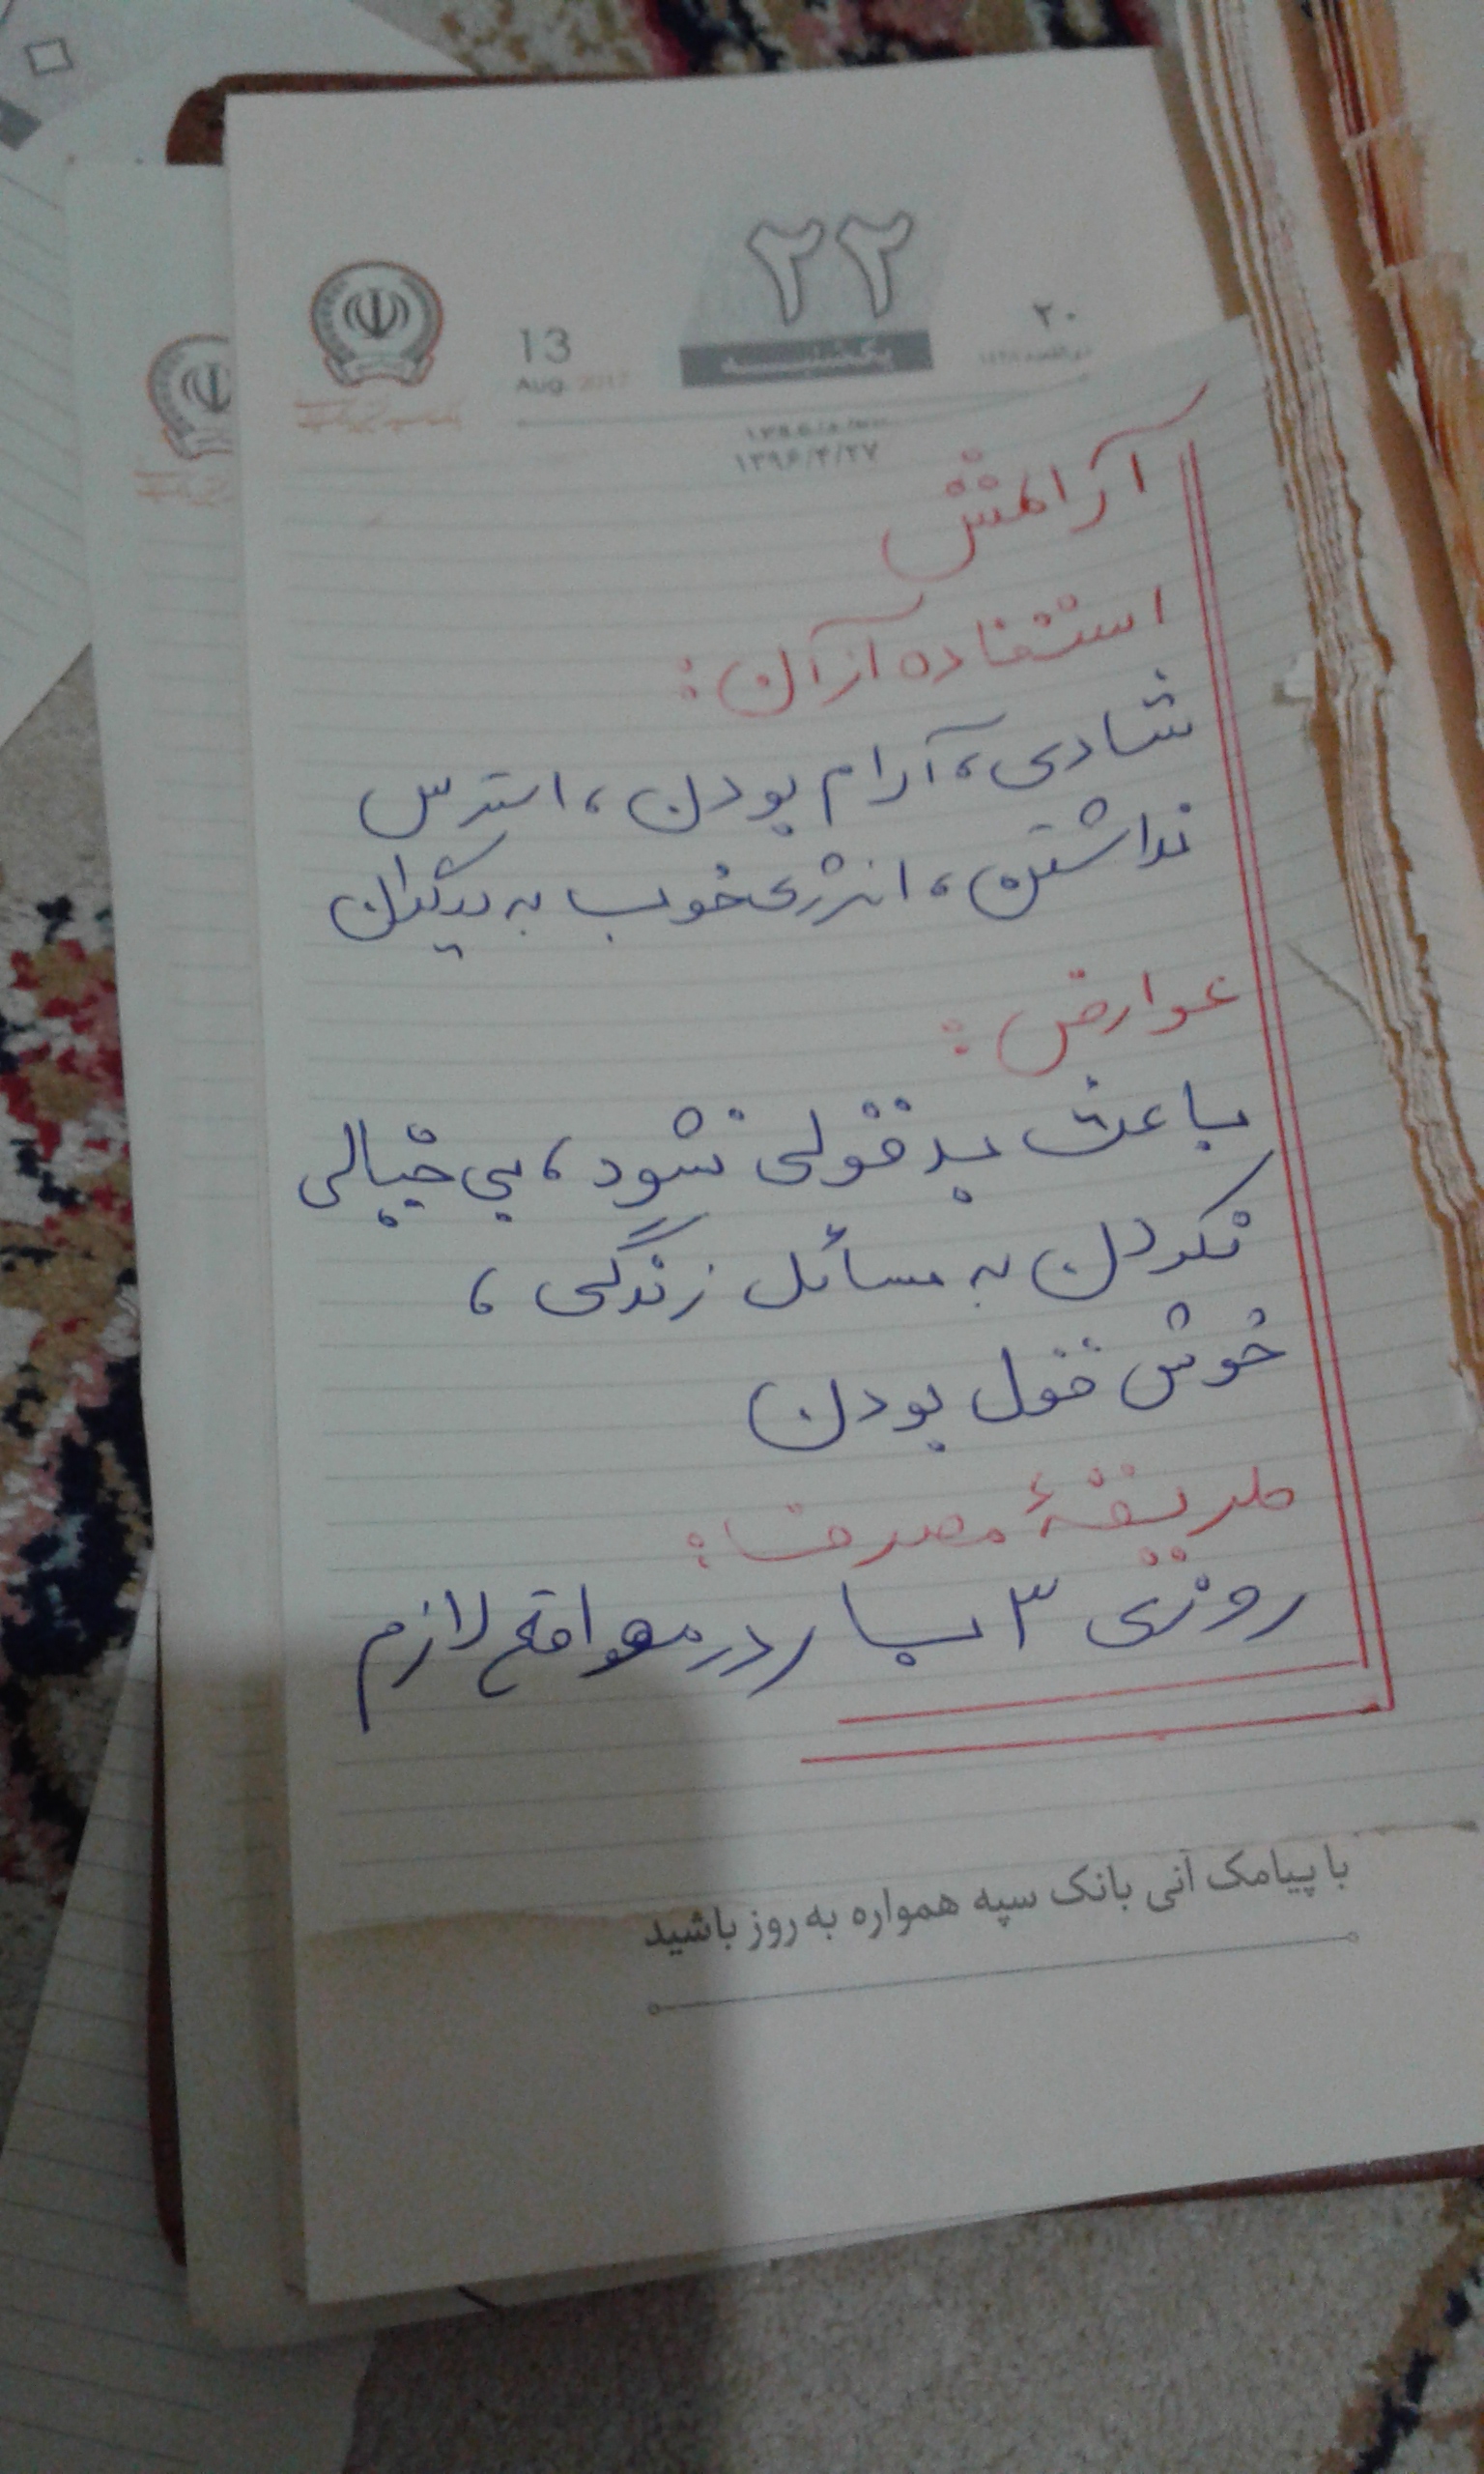 ۲۲
یکشنبه
13
Aug. 2017
۲۰
۱۳۹۶/۴/۲۷
آرامش
استفاده از آن:
شادی، آرام بودن، استرس
نداشتن، انرژی خوب به دیگران
عوارض:
باعث بدقولی نشود، بی خیالی
نکردن به مسائل زندگی،
خوش قول بودن
طریقهٔ مصرف:
روزی ۳ بار در مواقع لازم
با پیامک آنی بانک سپه همواره به روز باشید